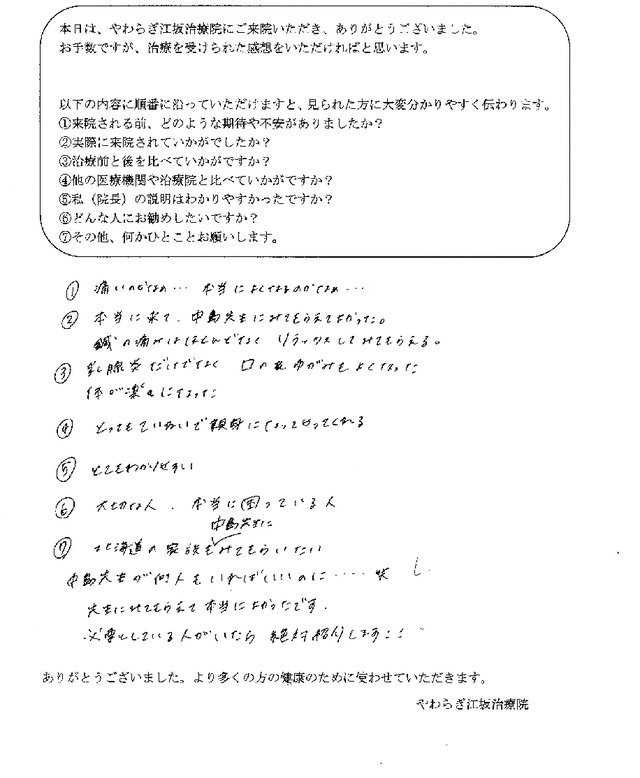 本日は、やわらぎ江坂治療院にご来院いただき、ありがとうございました。
お手数ですが、治療を受けられた感想をいただければと思います。
以下の内容に順番に沿っていただけますと、見られた方に大変分かりやすく伝わります。
①来院される前、どのような期待や不安がありましたか？
②実際に来院されていかがでしたか？
③治療前と後を比べていかがですか？
④他の医療機関や治療院と比べていかがですか？
⑤私（院長）の説明はわかりやすかったですか？
⑥どんな人にお勧めしたいですか？
⑦その他、何かひとことお願いします。
① 痛いのかなぁ… 本当によくなるのかなぁ…
② 本当に来て、中島先生にみてもらえてよかった。
鍼の痛みはほとんどなく リラックスしてみてもらえる。
③ 乳腺炎だけでなく 口の ゆがみもよくなった
体が楽になった
④ とってもていねいで親身になってやってくれる
⑤ とてもわかりやすい
⑥ 大切な人、本当に困っている人
中島先生に
⑦ 北海道の家族をみてもらいたい
中島先生が何人もいればいいのに‥‥‥笑
先生にみてもらえて本当によかったです。
必要としている人がいたら 絶対紹介します！！
ありがとうございました。より多くの方の健康のために使わせていただきます。
やわらぎ江坂治療院